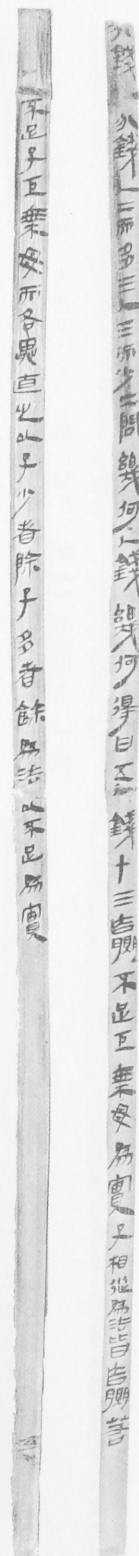 分錢　分錢人二而多三人三而少二問幾何人錢幾何得曰五人錢十三贏不足互乘母為實子相從為法皆贏若
不足子互乘母而各異直之以子少者除子多者餘為法以不足為實